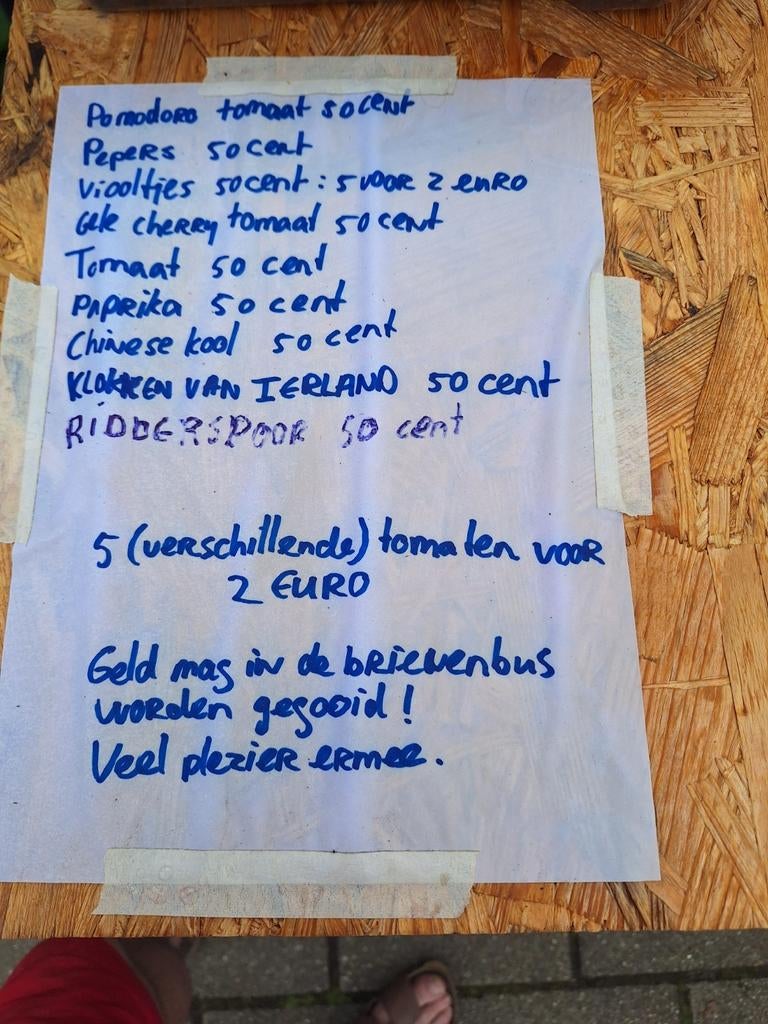 Pomodoro tomaat 50 cent
Pepers 50 cent
Viooltjes 50 cent : 5 voor 2 euro
Gele cherry tomaat 50 cent
Tomaat 50 cent
Paprika 50 cent
Chinese kool 50 cent
KLOKKEN VAN IERLAND 50 cent
RIDDERSPOOR 50 cent
5 (verschillende) tomaten voor
2 EURO
Geld mag in de brievenbus
worden gegooid !
Veel plezier ermee.